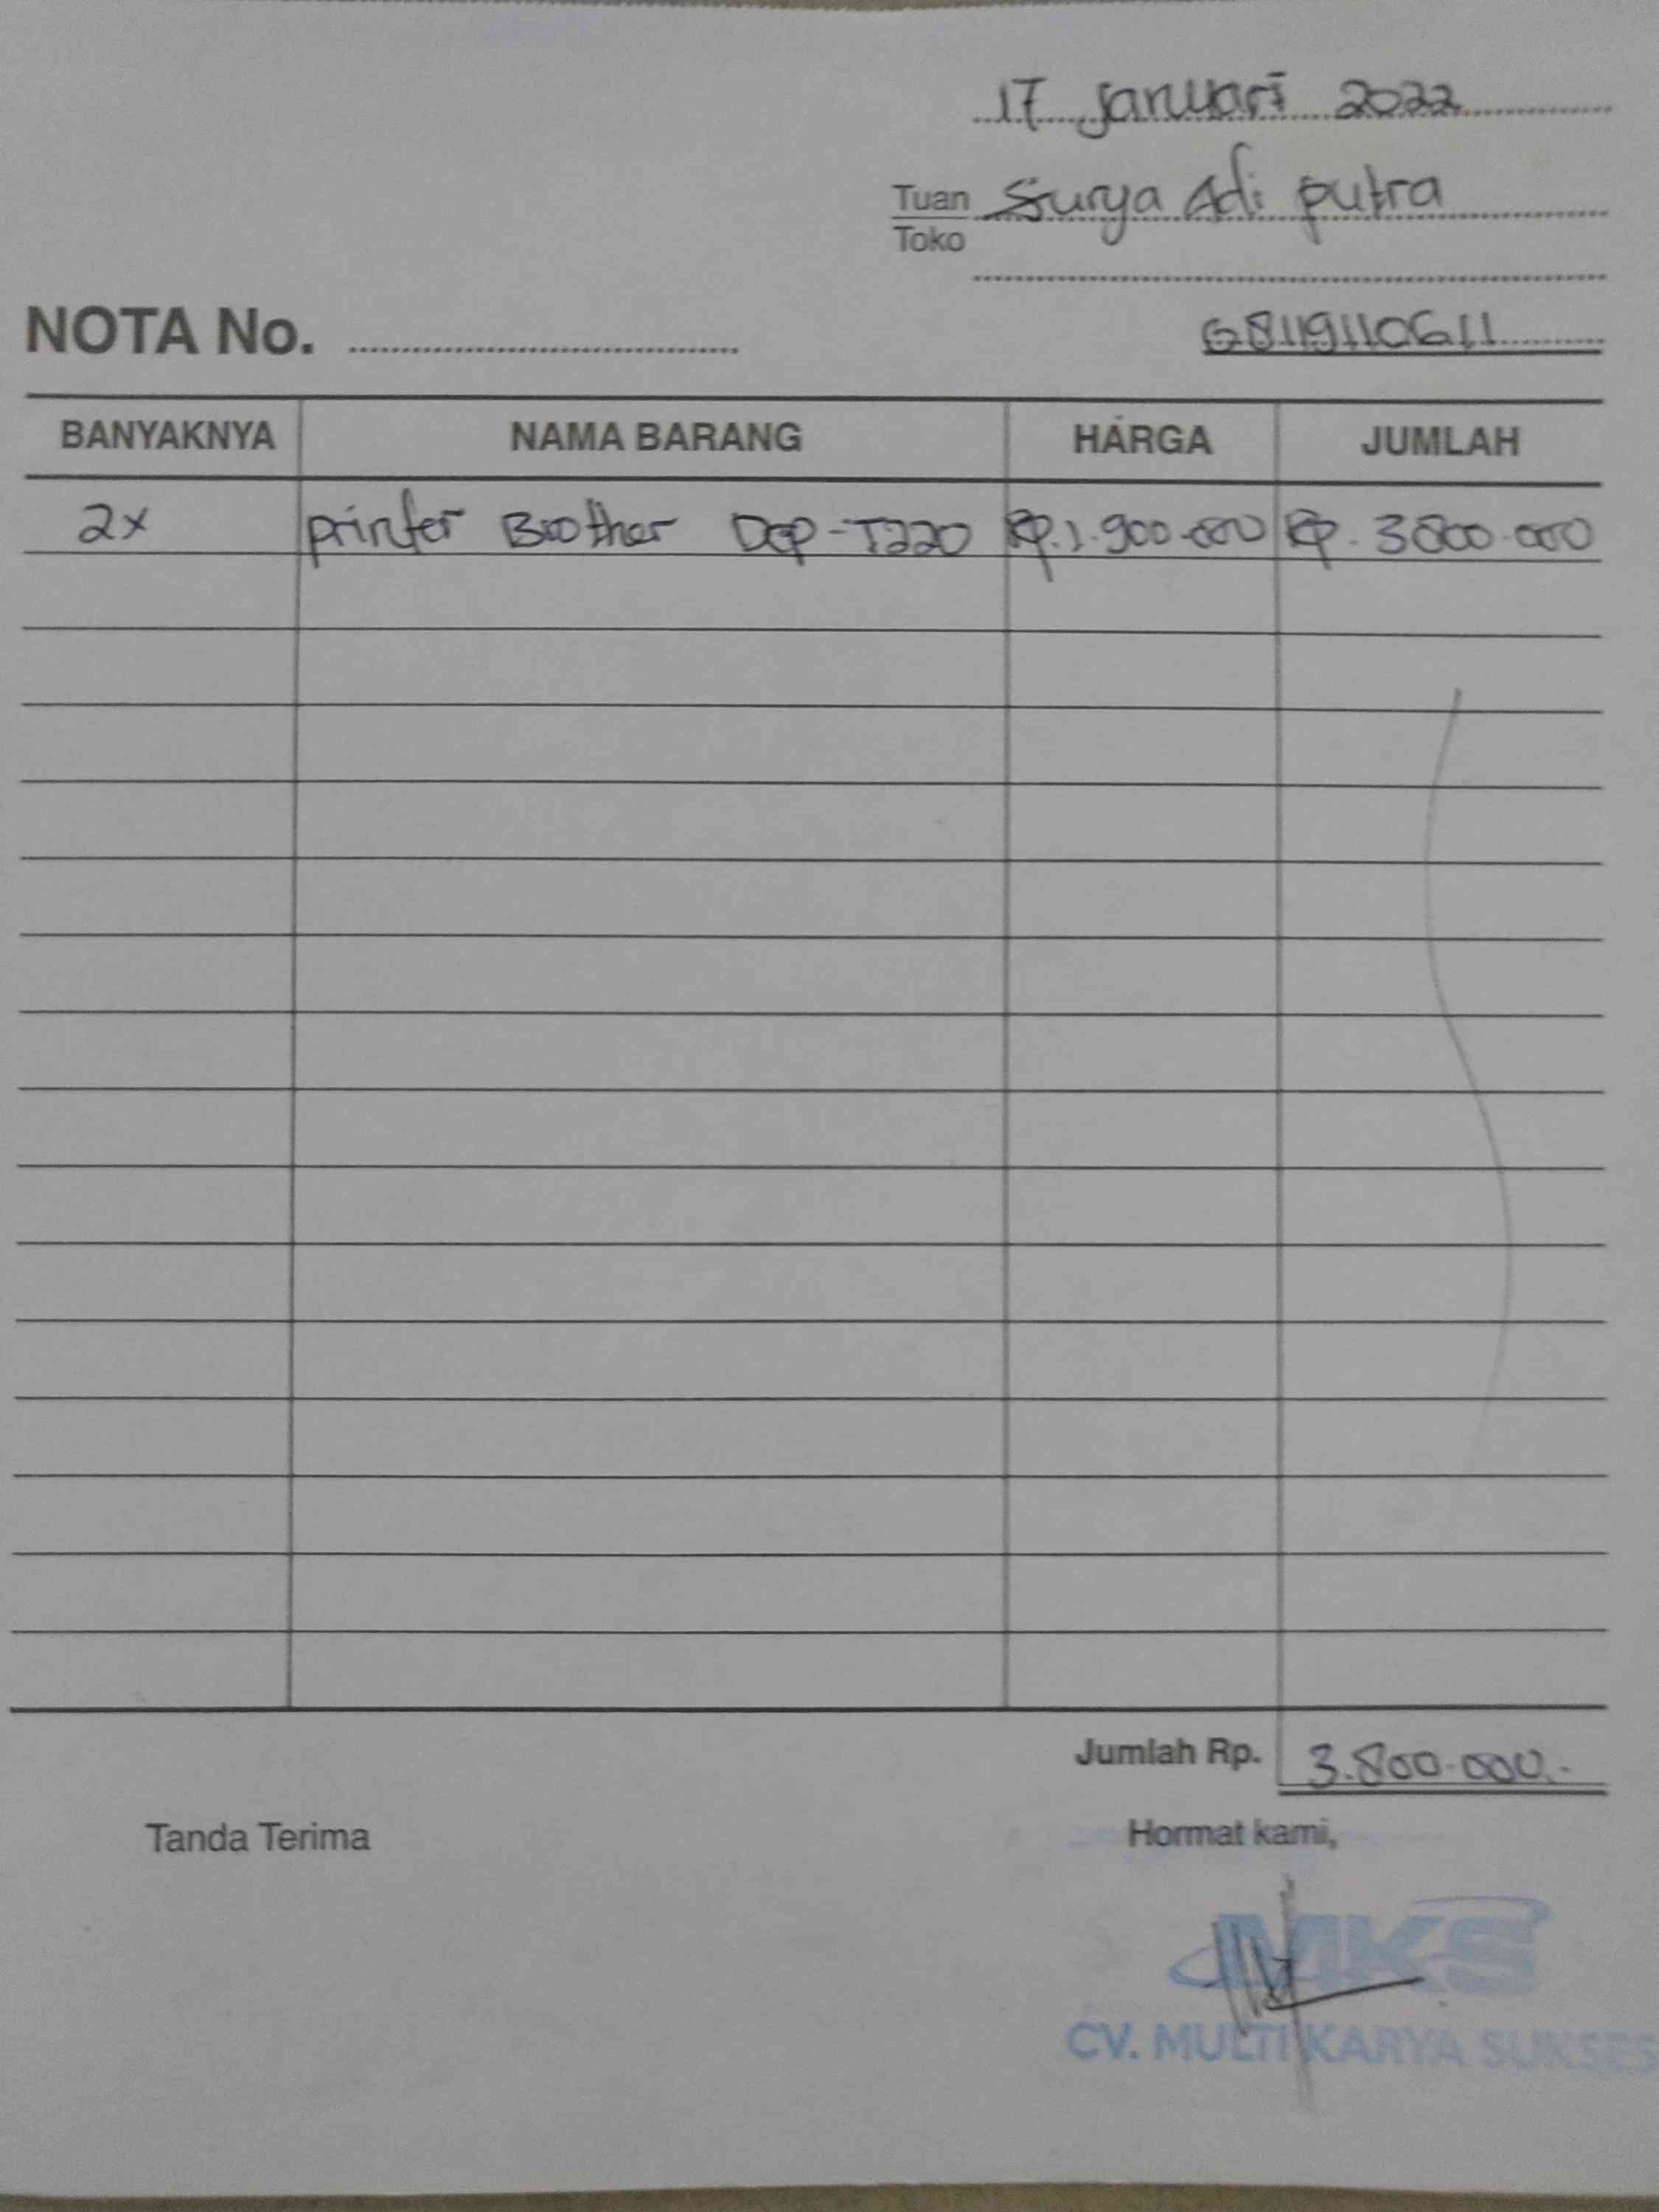 17 Januari 2022
Tuan Surya Adi putra
Toko
NOTA No. 08119110611
BANYAKNYA NAMA BARANG HARGA JUMLAH
2x printer Brother Dcp-T220 Rp.1.900.000 Rp. 3800.000
Jumlah Rp. 3.800.000.-
Tanda Terima Hormat kami,
MKS
CV. MULTI KARYA SUKSES